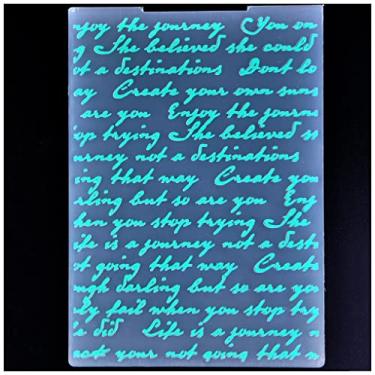 njoy the journey You on
g She believed she could
ot a destinations Dont lo
ay Create your own suns
are you Enjoy the journe
op trying She believed s
urney not a destinations
ing that way Create you
rling but so are you Enj
hen you stop trying She
ife is a journey not a dest
ot going that way Create
ugh darling but so are yo
ly fail when you stop try
e did Life is a journey n
back your not going that n